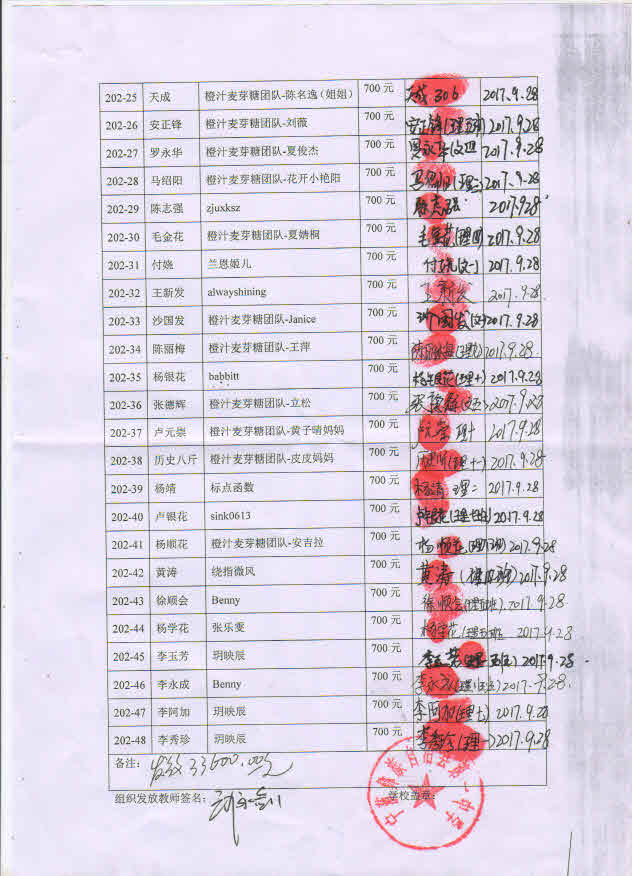 202-25 天成 橙汁麦芽糖团队-陈名逸（姐姐） 700 元 天成 306 2017.9.28
202-26 安正锋 橙汁麦芽糖团队-刘薇 700 元 安正锋 2017.9.28
202-27 罗永华 橙汁麦芽糖团队-夏俊杰 700 元 2017.9.28
202-28 马绍阳 橙汁麦芽糖团队-花开小艳阳 700 元 2017.9.28
202-29 陈志强 zjuxksz 700 元 陈志强 2017.9.28
202-30 毛金花 橙汁麦芽糖团队-夏婧桐 700 元 毛金花(理四) 2017.9.28
202-31 付娆 兰恩姬儿 700 元 付娆(文一) 2017.9.28
202-32 王新发 alwayshining 700 元 王新发 2017.9.28
202-33 沙国发 橙汁麦芽糖团队-Janice 700 元 沙国发 2017.9.28
202-34 陈丽梅 橙汁麦芽糖团队-王萍 700 元 陈丽梅 2017.9.28
202-35 杨银花 babbitt 700 元 杨银花(理十) 2017.9.28
202-36 张德辉 橙汁麦芽糖团队-立松 700 元 张德辉 2017.9.28
202-37 卢元崇 橙汁麦芽糖团队-黄子晴妈妈 700 元 理十 2017.9.28
202-38 历史八斤 橙汁麦芽糖团队-皮皮妈妈 700 元 (理十一) 2017.9.28
202-39 杨靖 标点函数 700 元 杨靖 理二 2017.9.28
202-40 卢银花 sink0613 700 元 卢银花 2017.9.28
202-41 杨顺花 橙汁麦芽糖团队-安吉拉 700 元 杨顺花 2017.9.28
202-42 黄涛 绕指微风 700 元 黄涛 2017.9.28
202-43 徐顺会 Benny 700 元 徐顺会 2017.9.28
202-44 杨学花 张乐雯 700 元 杨学花 2017.9.28
202-45 李玉芳 玥映辰 700 元 李玉芳 2017.9.28
202-46 李永成 Benny 700 元 李永成 2017.9.28
202-47 李阿加 玥映辰 700 元 李阿加 2017.9.28
202-48 李秀珍 玥映辰 700 元 李秀珍(理一) 2017.9.28
备注： 发放33600.00元
组织发放教师签名： 学校盖章：